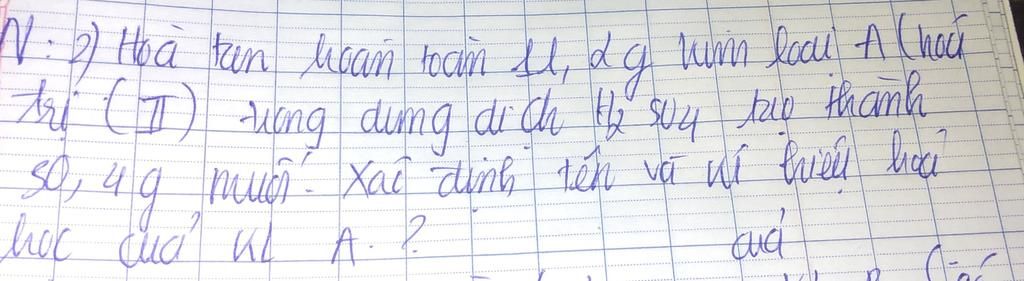 N: 2) Hoà tan hoàn toàn 11,2 g kim loại A (hoá
trị (II) trong dung dịch H2SO4 tạo thành
30,4 g muối. Xác định tên và kí hiệu hoá
học của KL A. ? của